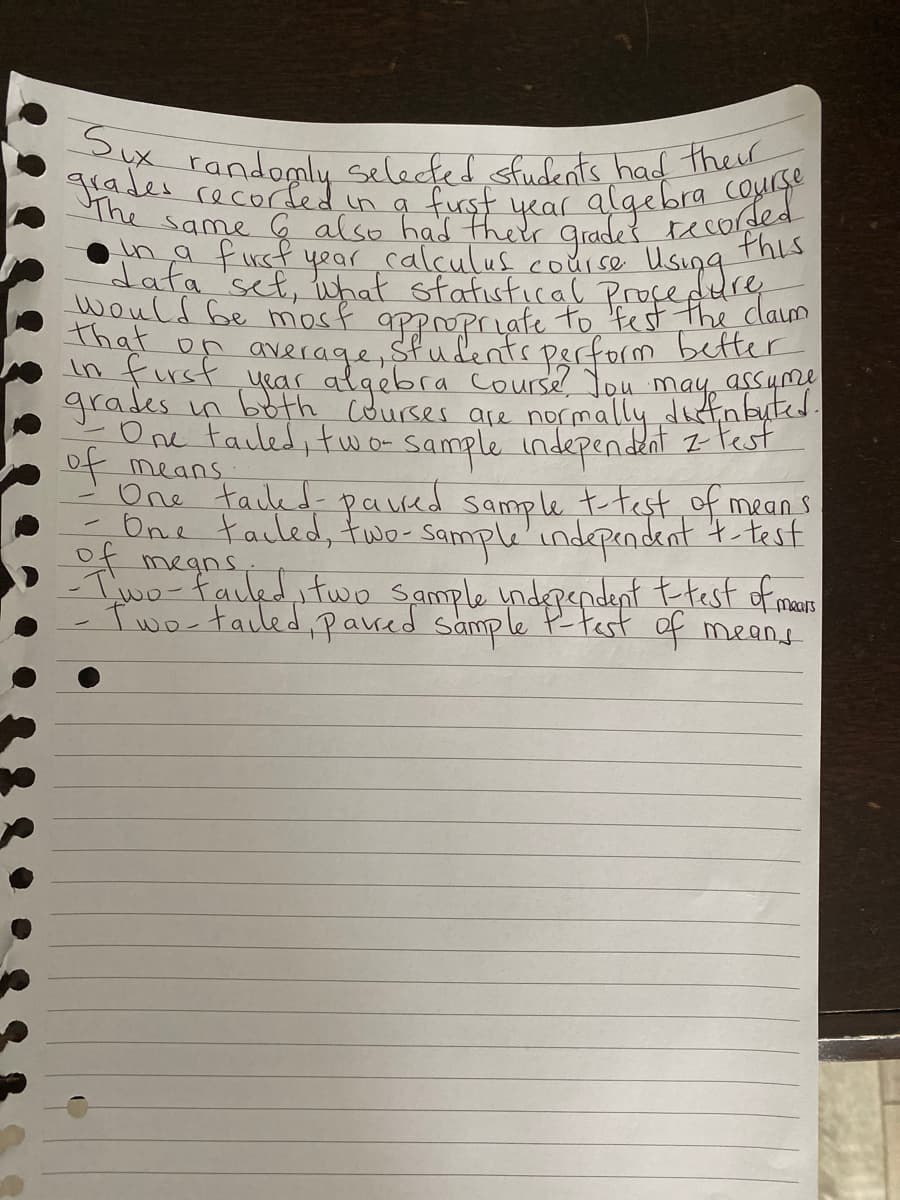 Six randomly selected students had their
grades recorded in a first year algebra course
The same 6 also had their grades recorded
in a first year calculus course. Using this
data set, what statistical procedure
would be most appropriate to test the claim
that on average, students perform better
in first year algebra course? You may assume
grades in both courses are normally distributed.
- One tailed, two-sample independent z-test
of means.
- One tailed-paired sample t-test of means
- One tailed, two-sample independent t-test
of means.
- Two-tailed, two sample independent t-test of means
- Two-tailed, paired sample t-test of means